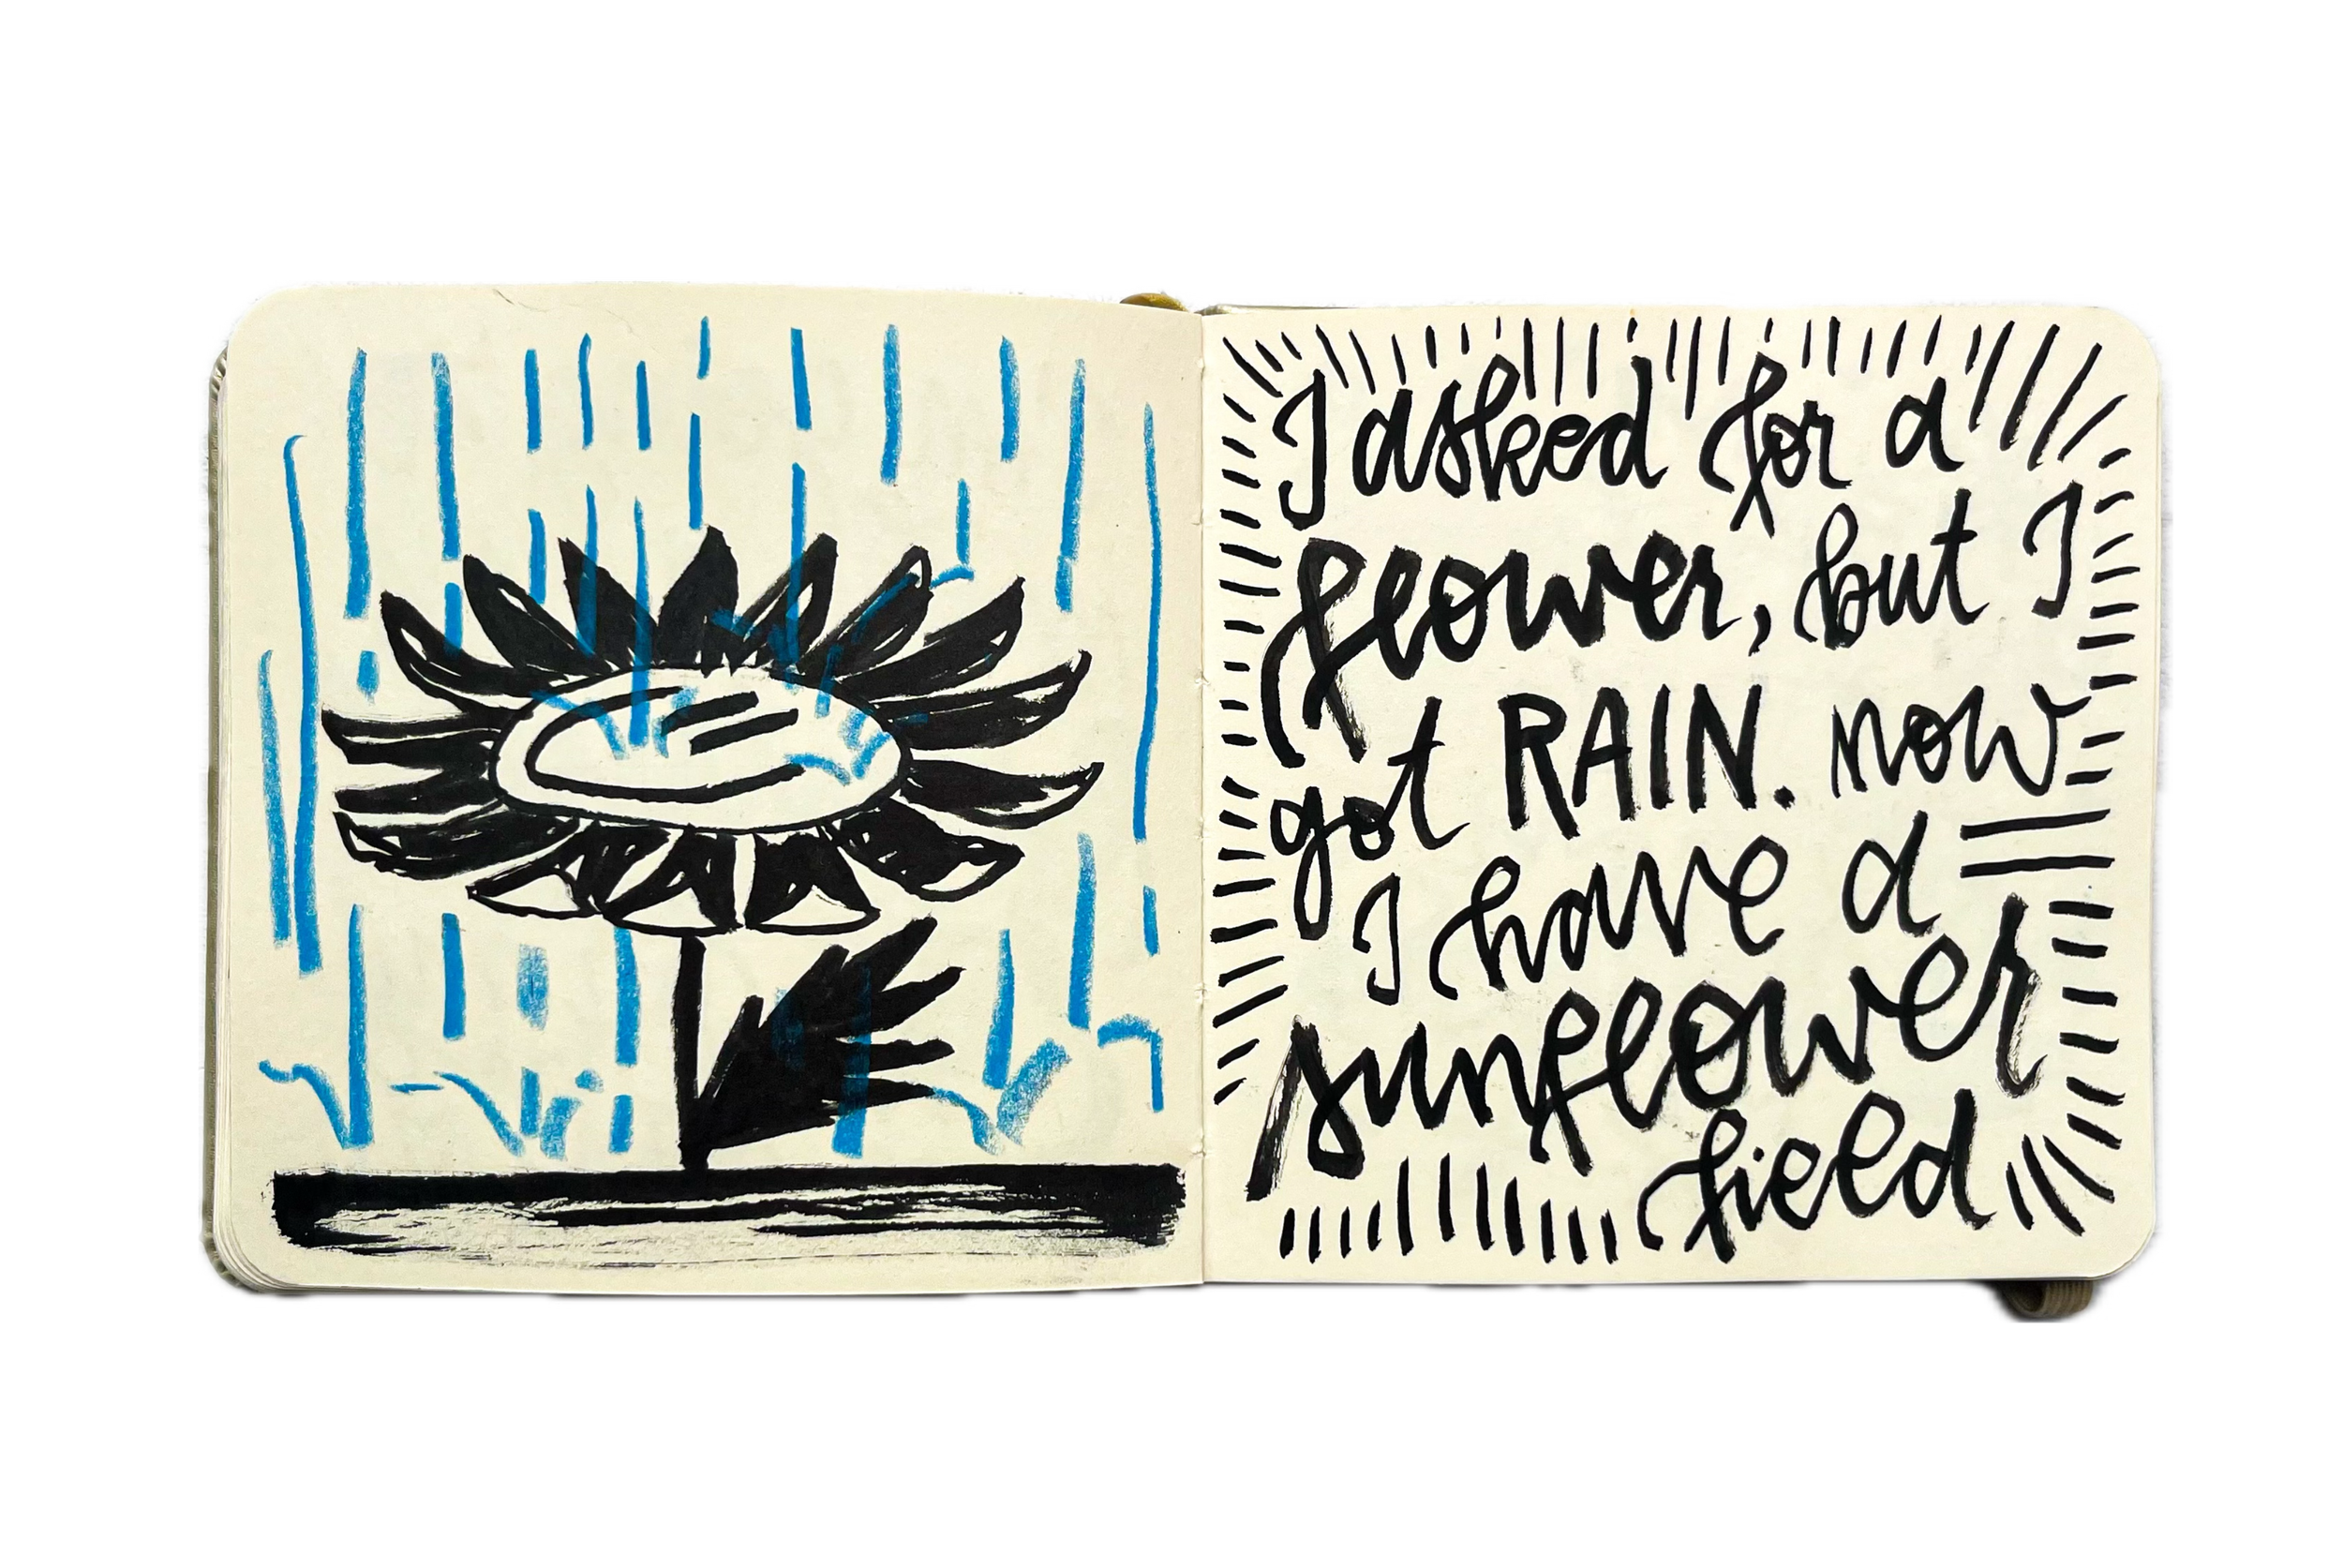 I asked for a
flower, but I
got RAIN. now
I have a
sunflower
field